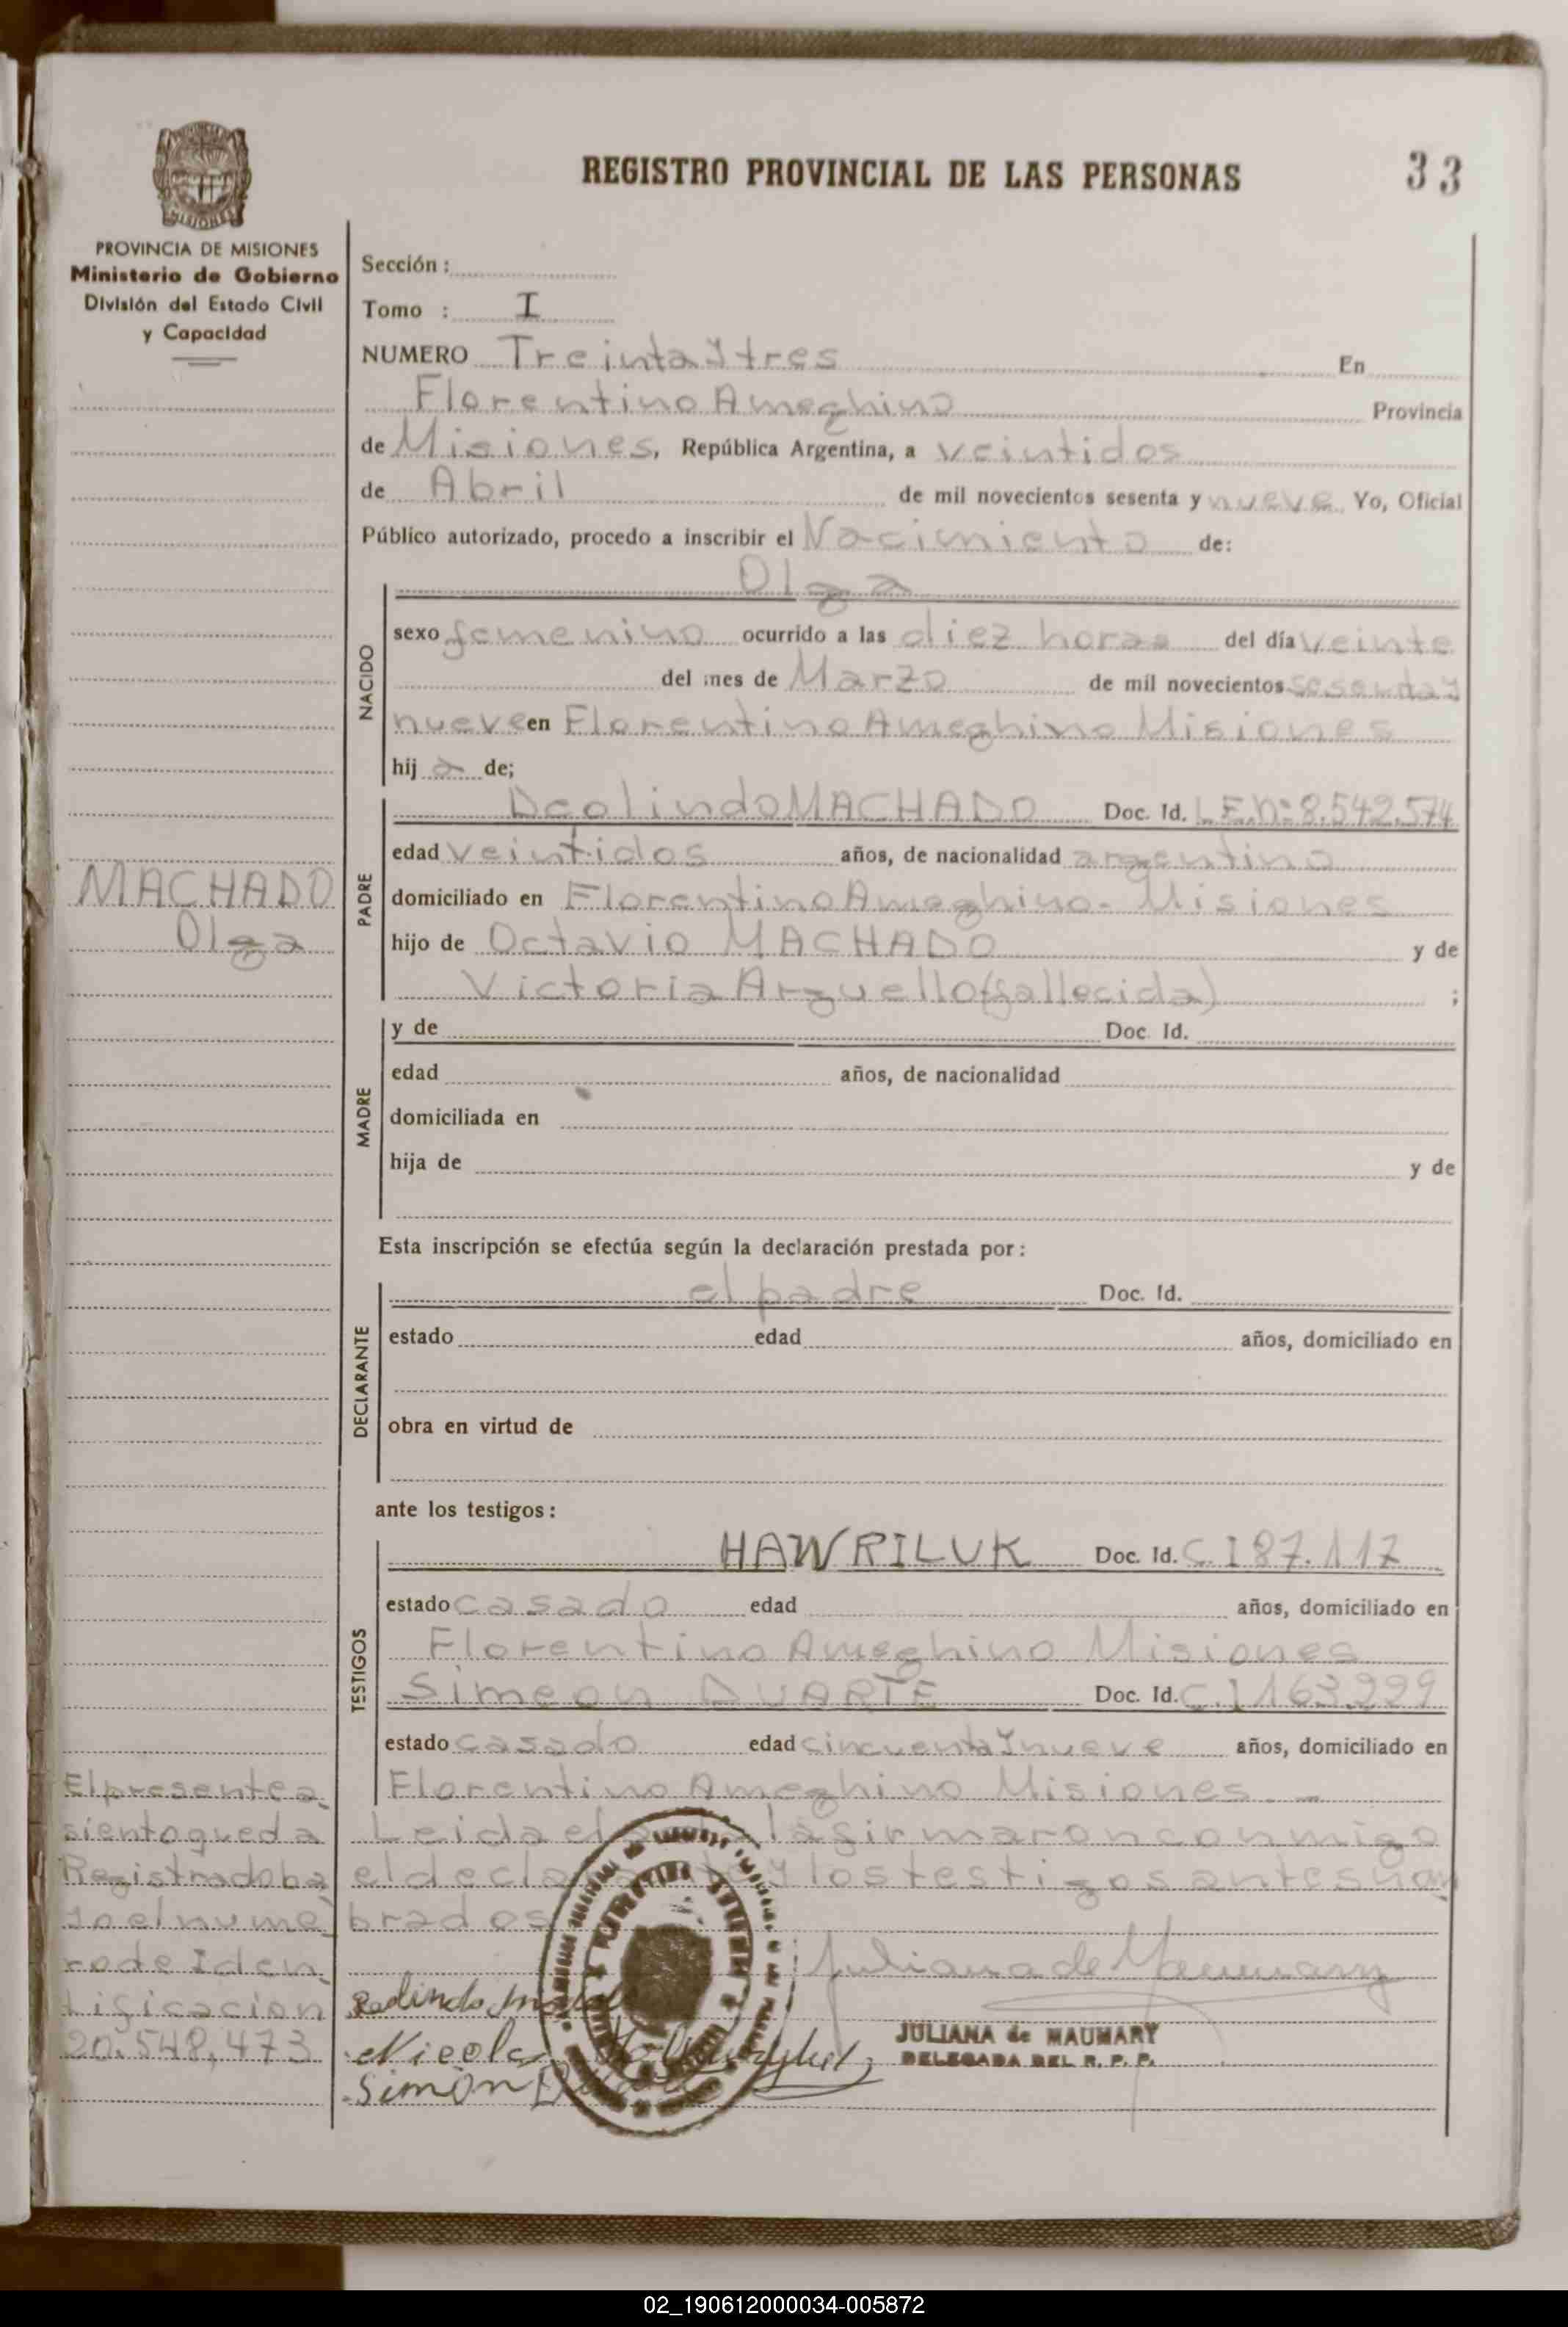 REGISTRO PROVINCIAL DE LAS PERSONAS
33
MISIONES
PROVINCIA DE MISIONES
Ministerio de Gobierno
División del Estado Civil
y Capacidad
Sección :
Tomo : I
NUMERO Treinta y tres En
Florentino Ameghino Provincia
de Misiones, República Argentina, a veintidos
de Abril de mil novecientos sesenta y nueve Yo, Oficial
Público autorizado, procedo a inscribir el Nacimiento de:
Olga
NACIDO
sexo femenino ocurrido a las diez horas del día veinte
del mes de Marzo de mil novecientos sesenta y
nueve en Florentino Ameghino Misiones
hij a de;
PADRE
Deolindo MACHADO Doc. Id. L.E.Nº 8.542.574
edad veintidos años, de nacionalidad argentino
domiciliado en Florentino Ameghino - Misiones
hijo de Octavio MACHADO y de
Victoria Arguello (fallecida) ;
MACHADO
Olga
MADRE
y de Doc. Id.
edad años, de nacionalidad
domiciliada en
hija de y de
Esta inscripción se efectúa según la declaración prestada por :
DECLARANTE
el padre Doc. Id.
estado edad años, domiciliado en
obra en virtud de
ante los testigos :
TESTIGOS
HAWRILUK Doc. Id. C.I 87.117
estado casado edad años, domiciliado en
Florentino Ameghino Misiones
Simeon DUARTE Doc. Id. C.I 163.299
estado casado edad cincuenta y nueve años, domiciliado en
Florentino Ameghino Misiones. -
Leida el la firmaron conmigo
el y los testigos antes nom
brados
El presente a-
siento queda
Registrado ba
jo el nume-
ro de Iden-
tificacion
20.548.473
Juliana de Maumary
Nicola
Simon
JULIANA de MAUMARY
DELEGADA DEL R. P. P.
02_190612000034-005872